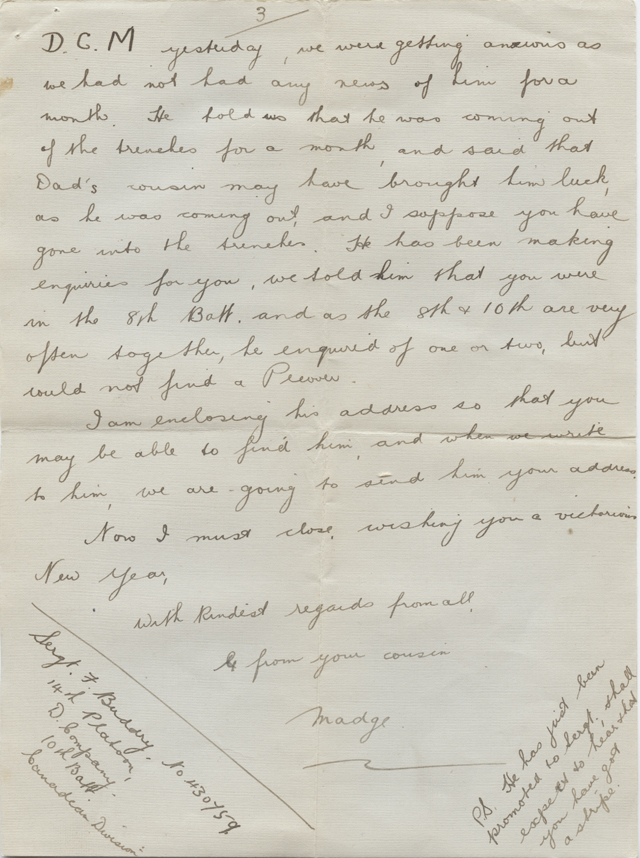 3
D.C.M yesterday, we were getting anxious as
we had not had any news of him for a
month. He told us that he was coming out
of the trenches for a month, and said that
Dad's cousin may have brought him luck,
as he was coming out, and I suppose you have
gone into the trenches. He has been making
enquiries for you, we told him that you were
in the 8th Batt. and as the 8th & 10th are very
often together, he enquired of one or two, but
could not find a Pecover.
I am enclosing his address so that you
may be able to find him, and when we write
to him, we are going to send him your address.
Now I must close, wishing you a victorious
New Year,
With kindest regards from all,
& from your cousin
Madge.
Sergt. F. Buddry. No 430759
14th Platoon,
D. Company.
10th Batt.
Canadean Division
P.S. He has just been
promoted to Sergt, shall
expect to hear that
you have got
a stripe.